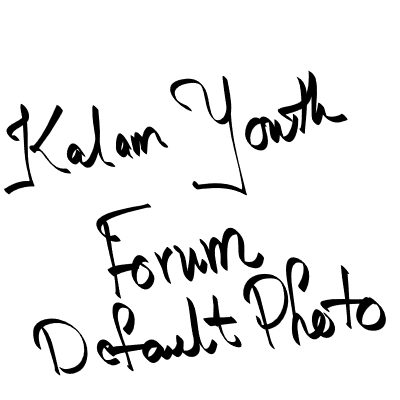 Kalam Youth
Forum
Default Photo